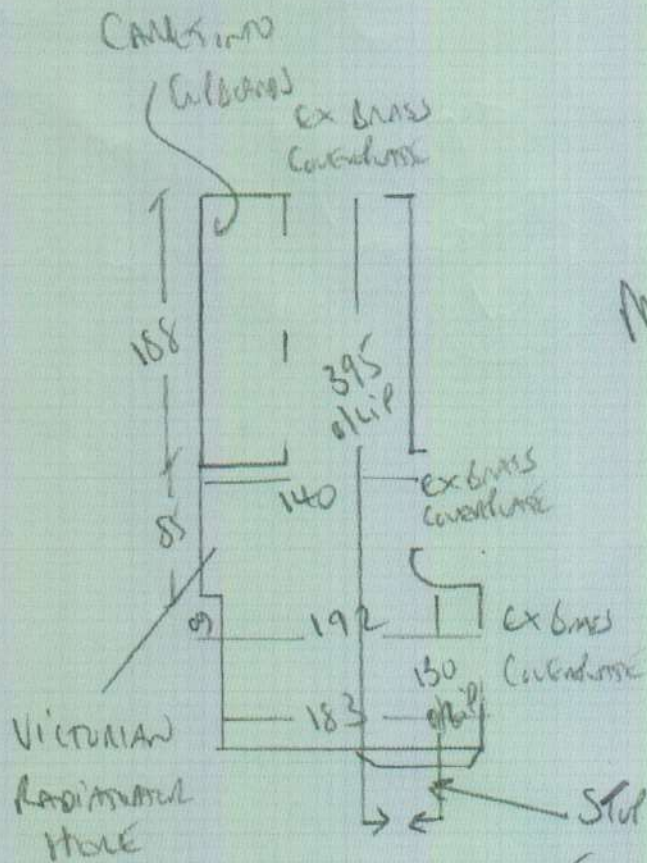 CARPET INTO
CUPBOARD
EX BRASS
COVERPLATE
188
395
o/lip
140
EX BRASS
COVERPLATE
85
09
192
EX BRASS
COVERPLATE
130
o/lip
183
VICTORIAN
RADIATOR
HOLE